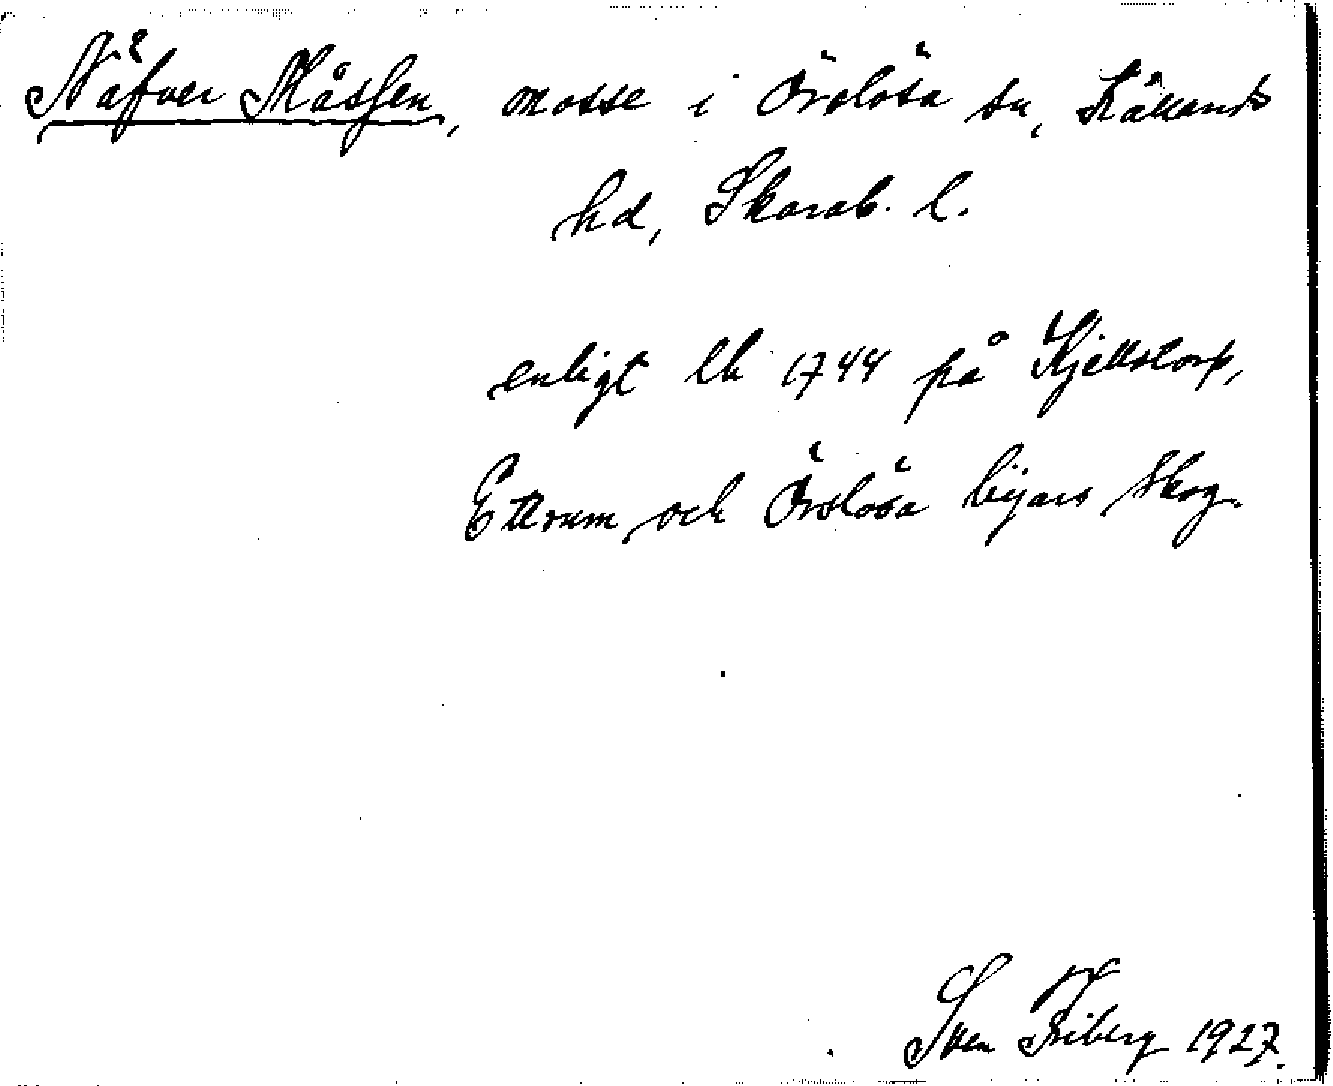 Näfver Måssen, mosse i Örslösa sn, Kållands
hd, Skarab. l.
enligt lh 1744 på Kjellstorp,
Ettrum och Örslösa byars skog.
Sven Friberg 1927.